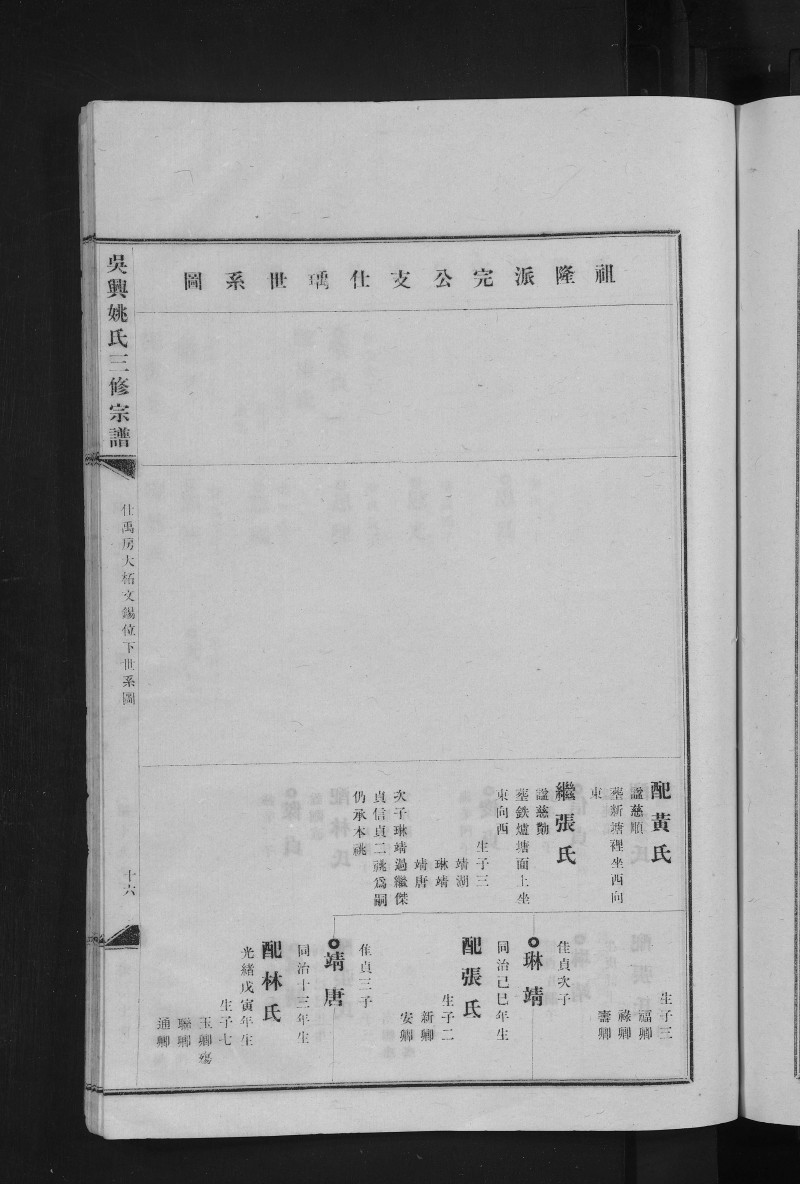 祖隆派完公支仕瑀世系圖
配黃氏
諡慈順
塟新塘裡坐西向
東
繼張氏
諡慈勤
塟鉄爐塘面上坐
東向西
生子三
靖湖
琳靖
靖唐
次子琳靖過繼傑
貞信貞二祧爲嗣
仍承本祧
生子三
福卿
祿卿
壽卿
佳貞次子
琳靖
同治己巳年生
配張氏
生子二
新卿
安卿
隹貞三子
靖唐
同治十三年生
配林氏
光緒戊寅年生
生子七
玉卿殤
聯卿
通卿
吳興姚氏三修宗譜
仕禹房大柘文錫位下世系圖
十六